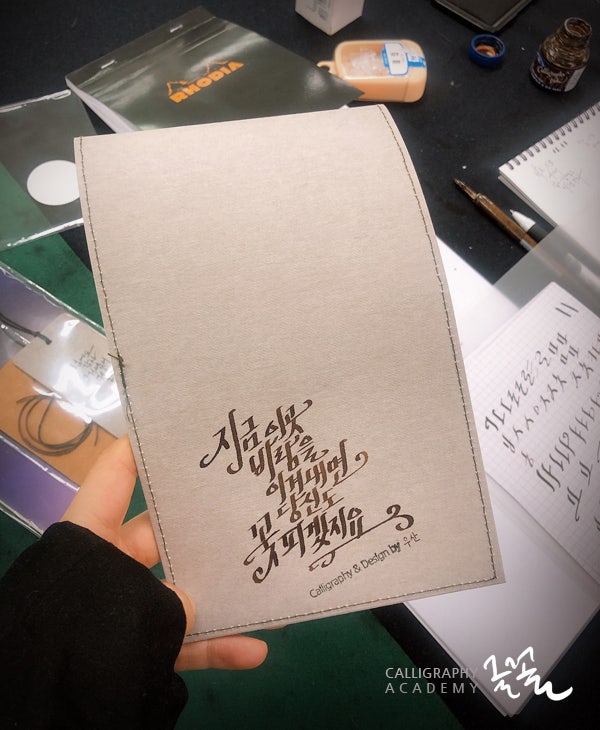 RHODIA
지금 이곳
바람을
이겨내면
당신도
꽃 피겠지요
Calligraphy & Design by
CALLIGRAPHY
ACADEMY
글꽃